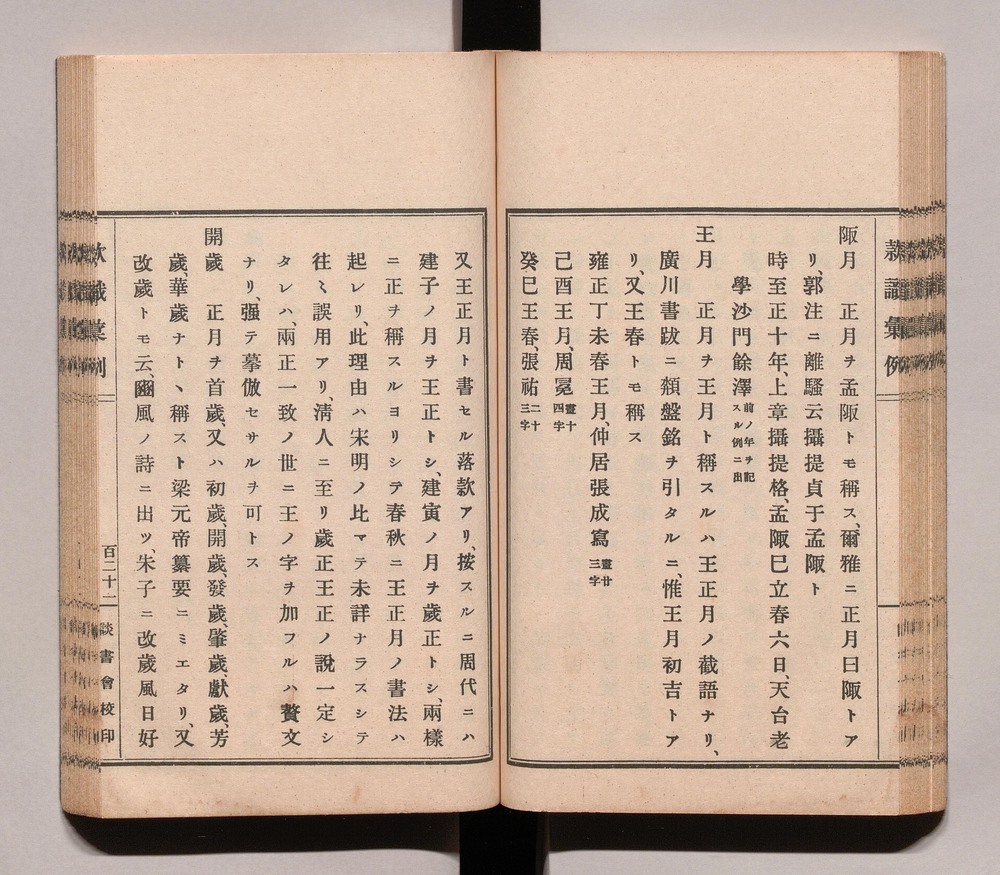 陬月　正月ヲ孟陬トモ稱ス、爾雅ニ正月曰陬トア
リ、郭注ニ離騷云攝提貞于孟陬ト
時至正十年、上章攝提格、孟陬巳立春六日、天台老
學沙門餘澤前ノ年ヲ記スル例ニ出
王月　正月ヲ王月ト稱スルハ王正月ノ截語ナリ、
廣川書跋ニ𩔖盤銘ヲ引タルニ、惟王月初吉トア
リ、又王春トモ稱ス
雍正丁未春王月、仲居張成寫畫廿三字
己酉王月、周冕畫十四字
癸巳王春、張祐二十三字
又王正月ト書セル落款アリ、按スルニ周代ニハ
建子ノ月ヲ王正トシ、建寅ノ月ヲ歲正トシ、兩樣
ニ正ヲ稱スルヨリシテ春秋ニ王正月ノ書法ハ
起レリ、此理由ハ宋明ノ比マテ未詳ナラスシテ
往ミ誤用アリ、淸人ニ至リ歲正王正ノ說一定シ
タレハ、兩正一致ノ世ニ王ノ字ヲ加フルハ贅文
ナリ、强テ摹倣セサルヲ可トス
開歲　正月ヲ首歲、又ハ初歲、開歲、發歲、肇歲、獻歲、芳
歲、華歲ナトヽ稱スト梁元帝纂要ニミエタリ、又
改歲トモ云、豳風ノ詩ニ出ツ、朱子ニ改歲風日好
百二十二
談書會校印